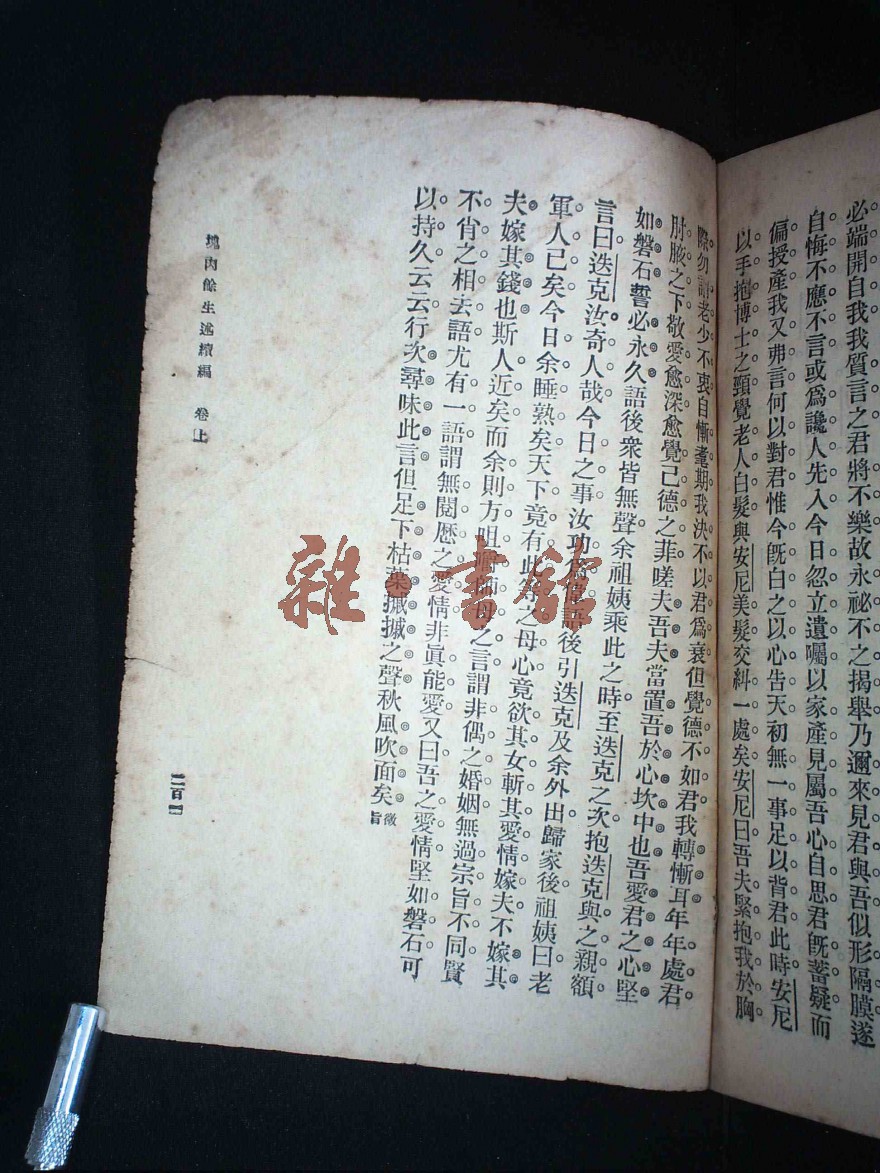 必端開自我我質言之君將不樂故永祕不之揭舉乃邇來見君與吾似形隔膜遂
自悔不應不言或爲讒人先入今日忽立遺囑以家產見屬吾心自思君旣蓄疑而
偏授產我又弗言何以對君惟今旣白之以心告天初無一事足以背君此時安尼
以手抱博士之頸覺老人白髮與安尼美髮交糾一處矣安尼曰吾夫緊抱我於胸
際勿謂老少不衷自慚耄期我決不以君爲衰但覺德不如君我轉慚耳年年處君
肘腋之下敬愛愈深愈覺己德之菲嗟夫吾夫當置吾於心坎中也吾愛君之心堅
如磐石誓必永久語後衆皆無聲余祖姨乘此之時至迭克之次抱迭克與之親額
言曰迭克汝奇人哉今日之事汝功爲偉語後引迭克及余外出歸家後祖姨曰老
軍人已矣今日余睡熟矣天下竟有此等之母心竟欲其女斬其愛情嫁夫不嫁其
夫嫁其錢也斯人近矣而余則方咀嚼師母之言謂非偶之婚姻無過宗旨不同賢
不肖之相去語尤有一語謂無閱歷之愛情非眞能愛又曰吾之愛情堅如磐石可
以持久云云行次尋味此言但足下枯葉摵摵之聲秋風吹面矣
徵旨
塊肉餘生述續編 卷上
雜·書館